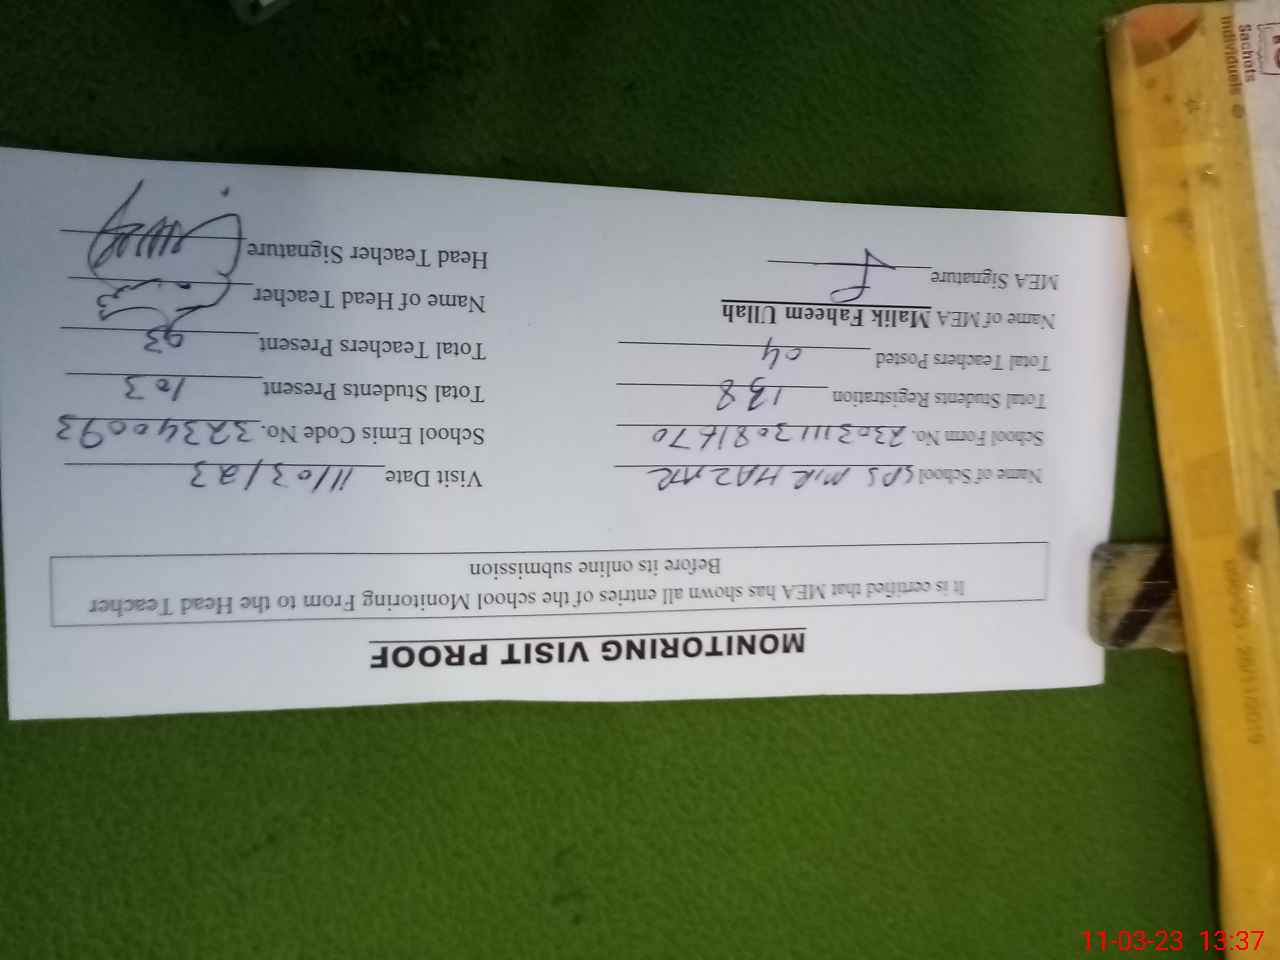 MONITORING VISIT PROOF
It is certified that MEA has shown all entries of the school Monitoring From to the Head Teacher
Before its online submission
Name of School GPS MIR HAZAR Visit Date 11/03/23
School Form No. 23031113081670 School Emis Code No. 32340093
Total Students Registration 138 Total Students Present 103
Total Teachers Posted 04 Total Teachers Present 03
Name of MEA Malik Faheem Ullah Name of Head Teacher
MEA Signature Head Teacher Signature
Sachets
Individuels
26/11/2019
11-03-23 13:37